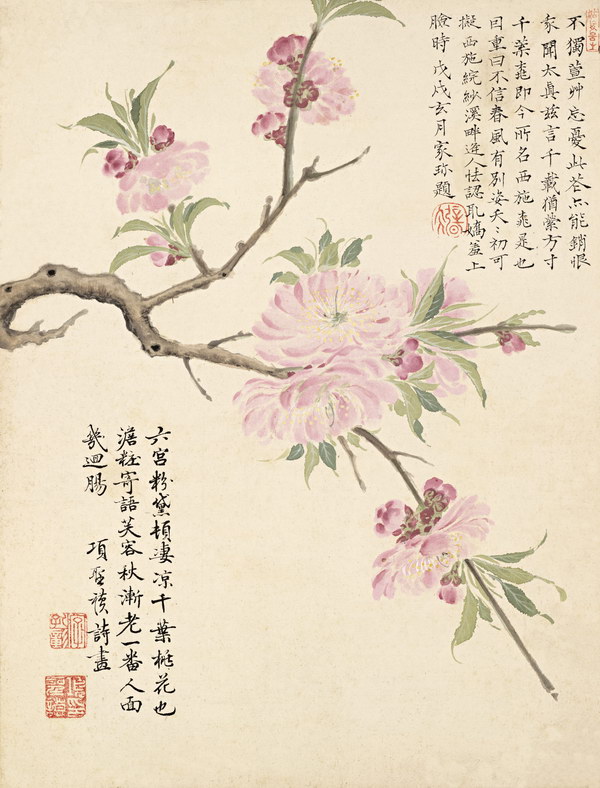 不獨萱艸忘憂此花亦能銷恨
家聞太真茲言千載猶縈方寸
千葉桃即今所名西施桃是也
因重曰不信春風有別姿夭〻初可
擬西施浣紗溪畔遊人怯認取嬌羞上
臉時戊戌玄月家珍題
六宮粉黛頓淒凉千葉桃花也
澹粧寄語芙容秋漸老一番人面
幾迴腸
項聖謨詩畫